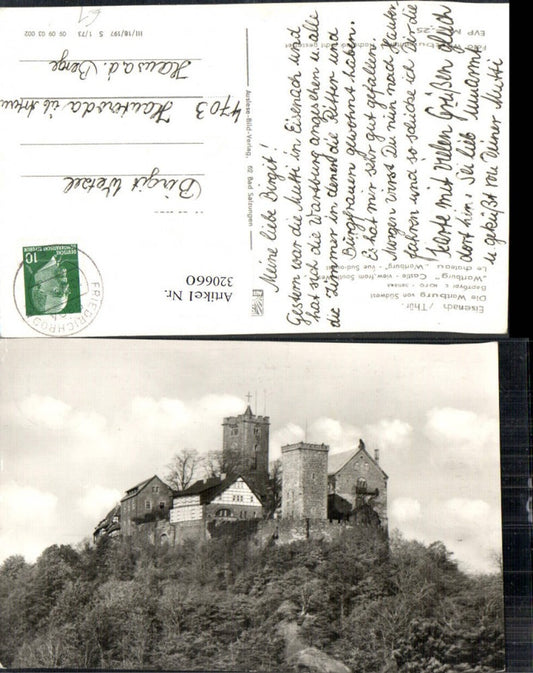 Meine liebe Birgit!
Gestern war die Mutti in Eisenach und
hat sich die Wartburg angesehen u. alle
die Zimmer in denen die Ritter und
Burgfrauen gewohnt haben.
Es hat mir sehr gut gefallen.
Morgen wirst Du nun nach
fahren und so schicke ich Dir die
Karte mit vielen Grüßen gleich
dort hin. Sei lieb
u. geküßt von Deiner Mutti
Birgit Wetzel
4703
Haus a. d. Berge
Eisenach /Thür.
Die Wartburg von Südwest
"Wartburg" Castle - view from Southwest
Le chateau „Wartburg" - vue Sud-ouest
Auslese-Bild-Verlag, 62 Bad Salzungen
III/18/197 S 1/73 09 09 03 002
EVP M
Artikel Nr.
320660
DEUTSCHE
DEMOKRATISCHE REPUBLIK
10
FRIEDRICHRODA